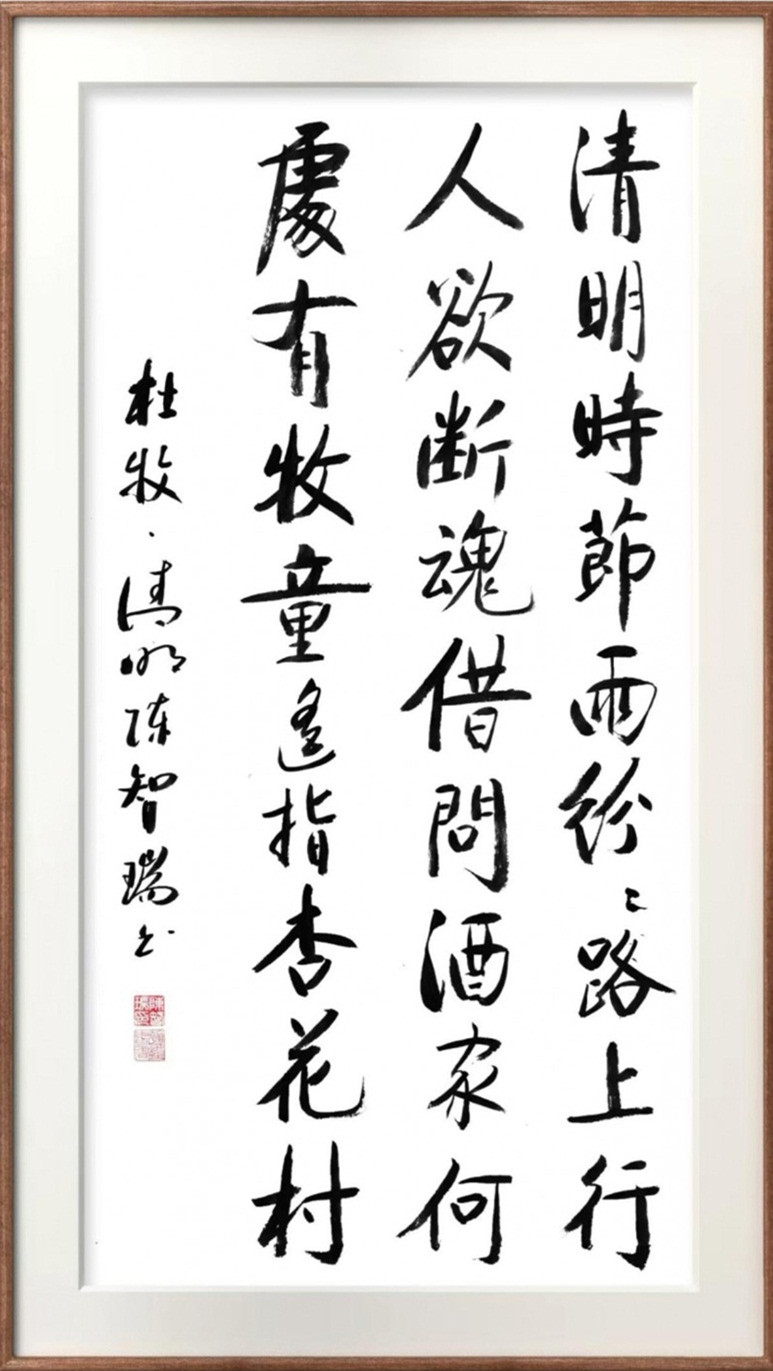 清明時節雨紛〻路上行
人欲斷魂借問酒家何
處有牧童遙指杏花村
杜牧·清明陈智瑞书